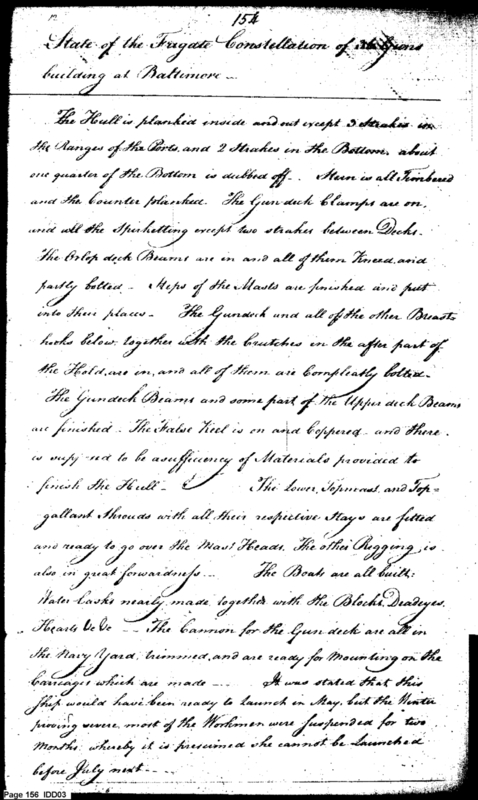 154
State of the Frigate Constellation of 36 Guns
building at Baltimore —
The Hull is planked inside and out except 3 Strakes in
the Ranges of the Ports, and 2 Strakes in the Bottom, about
one quarter of the Bottom is dubbed off - Stern is all Timbered
and the Counter planked. The Gun deck Clamps are on,
and all the Spirketting except two strakes between Decks.
The Orlop deck Beams are in and all of them Kneed and
partly bolted - Steps of the Masts are finished and put
into their places - The Gundeck and all of the other Breast
hooks below, together with the Crutches in the after part of
the Hold, are in, and all of them are Compleatly bolted -
The Gundeck Beams and some part of the Upper deck Beams
are finished - The False Keel is on and Coppered - and there
is supposed to be a sufficiency of Materials provided to
finish the Hull - The Lower, Topmast, and Top-
gallant Shrouds with all their respective Stays are fitted
and ready to go over the Mast Heads, The other Rigging is
also in great forwardness - The Boats are all built;
Water Casks nearly made, together with the Blocks, Deadeyes,
Hearts &c &c - The Cannon for the Gun deck are all in
the Navy Yard, trimmed, and are ready for mounting on the
Carriages which are made - It was stated that this
Ship would have been ready to launch in May, but the Winter
proving severe, most of the Workmen were suspended for two
Months, whereby it is presumed she cannot be launched
before July next -
Page 156 IDD03